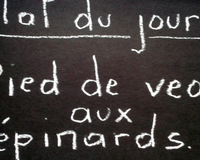 Plat du jour
Pied de veau
aux
épinards.